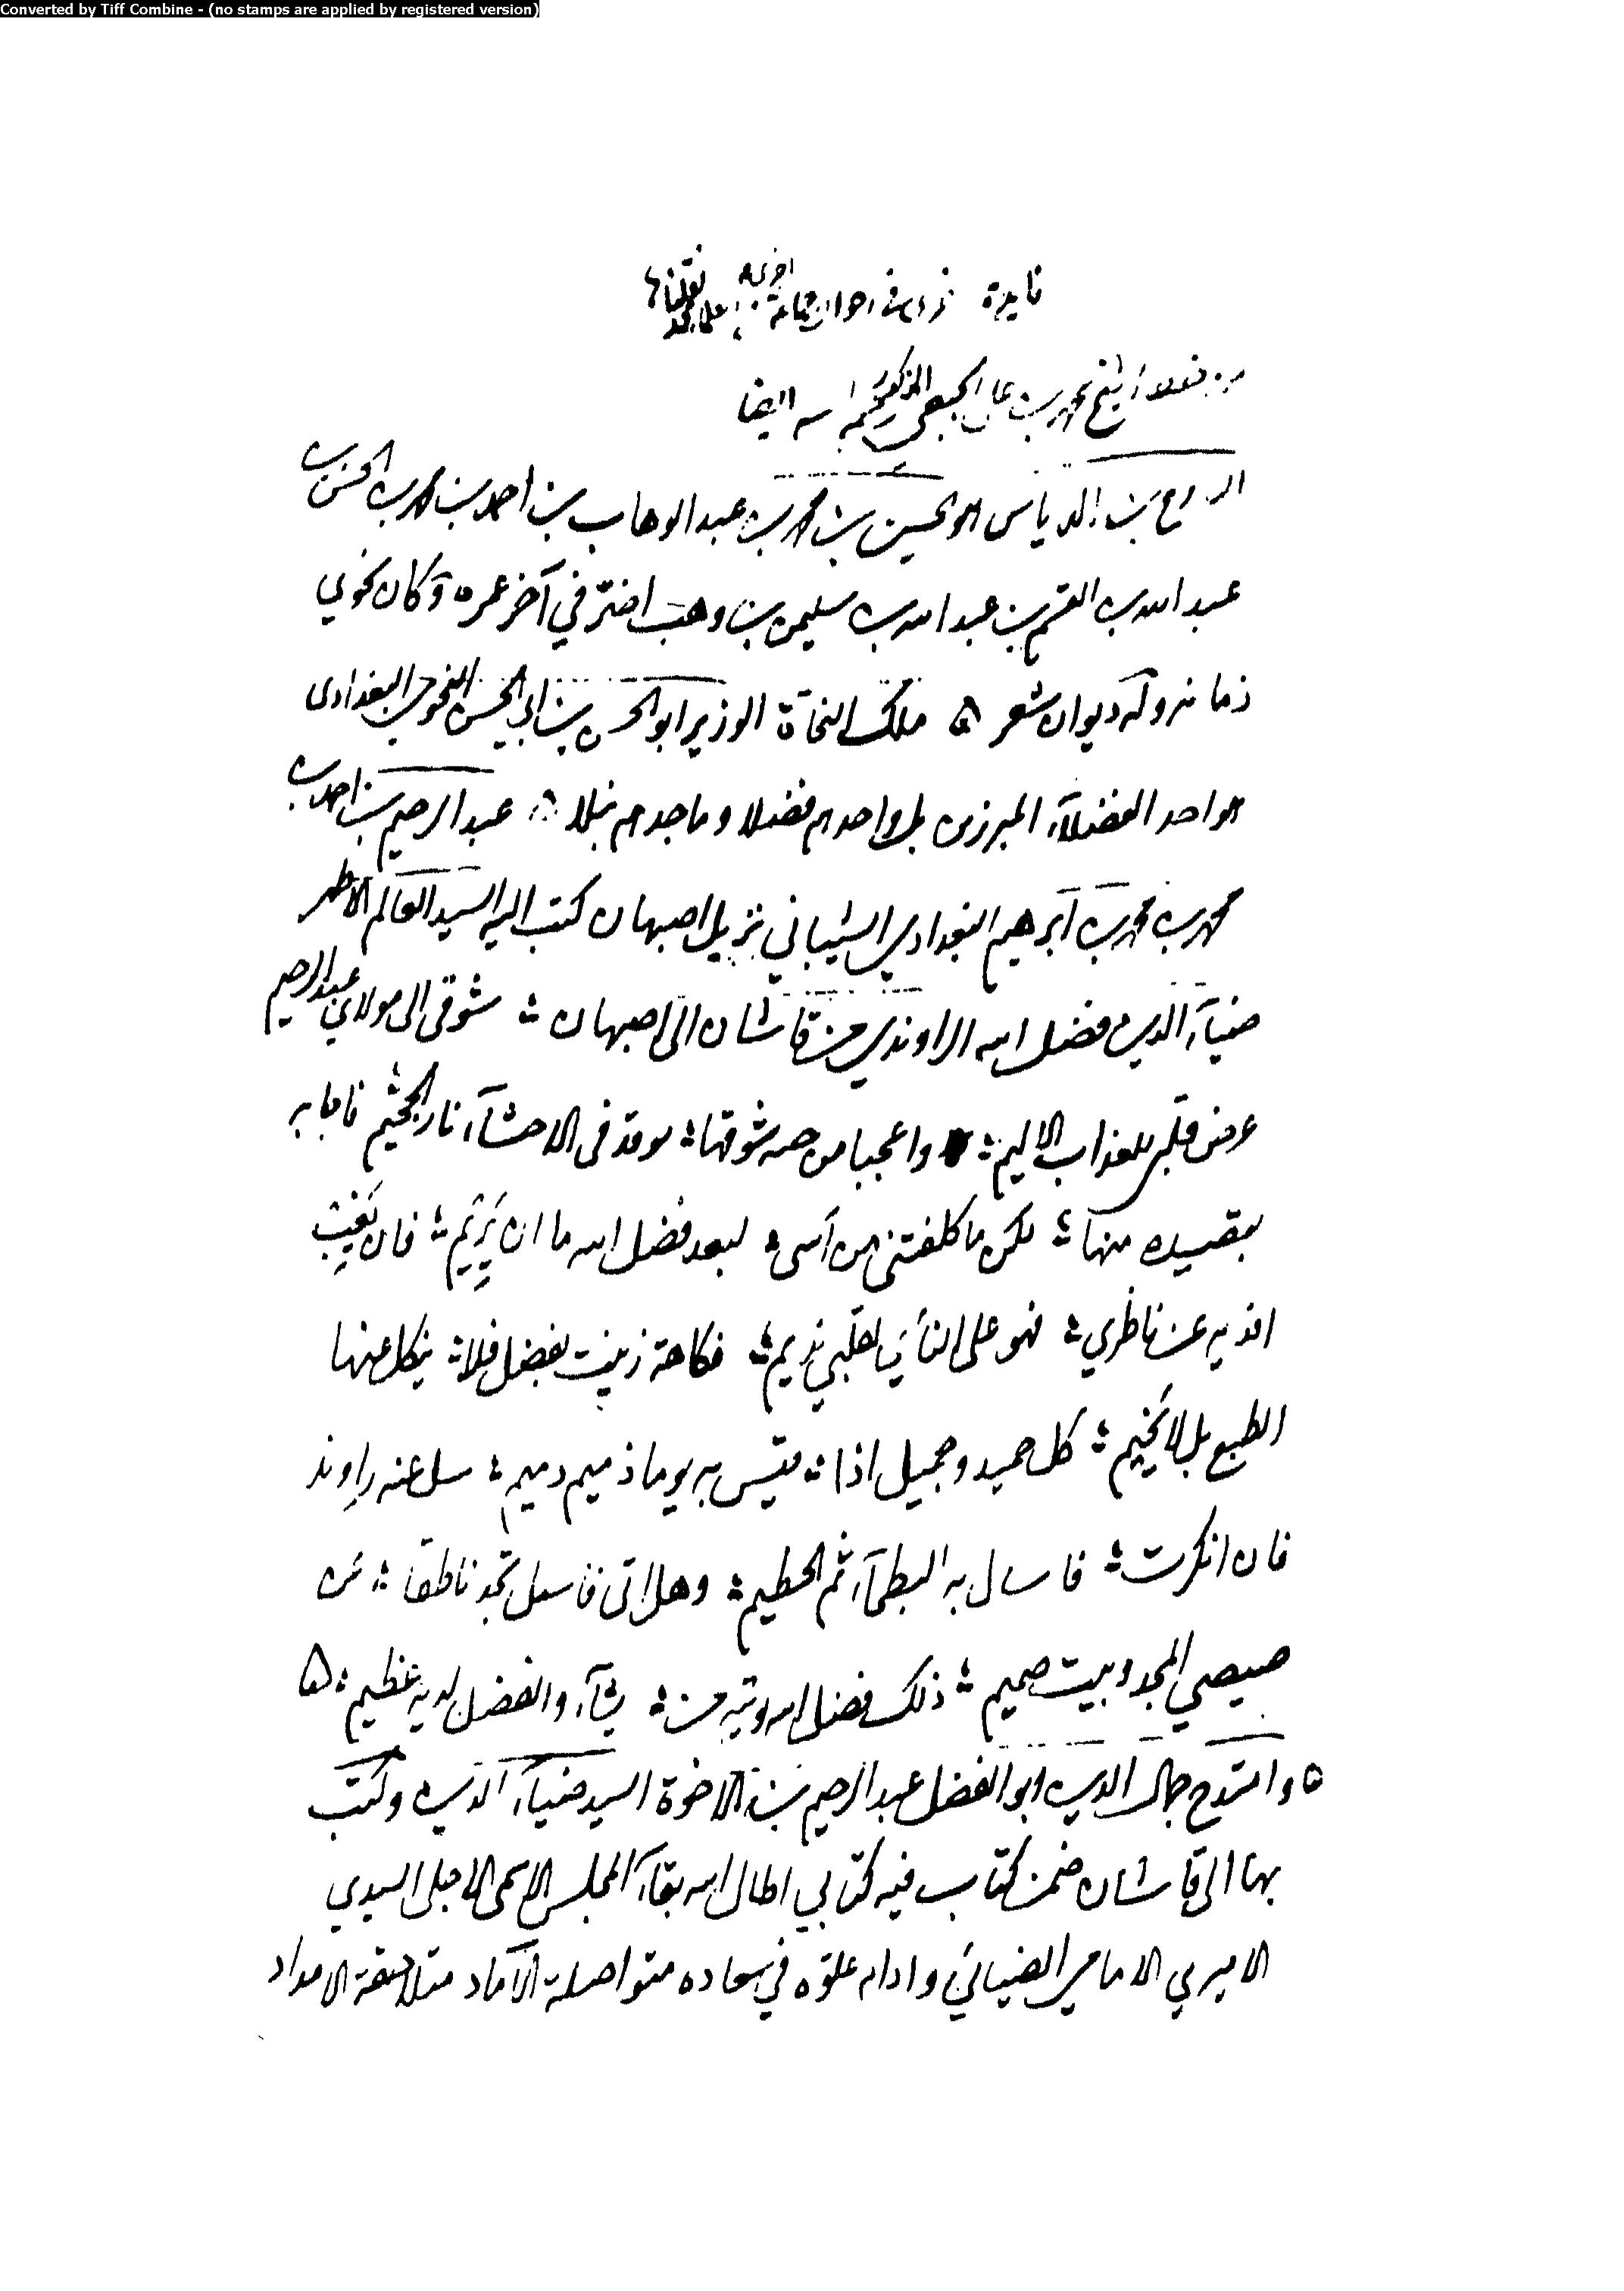 Converted by Tiff Combine - (no stamps are applied by registered version)
فايدة في جماعة اخرى نقلناها
من الشيخ محمد بن علي الجبعي المذكور رحمه الله ايضا
بن الدباس هو الحسين بن محمد بن عبد الوهاب بن احمد بن محمد بن الحسن بن
عبد الله بن القسم بن عبد الله بن سليمن بن وهب اضرّ في آخر عمره وكان نحوي
زمانه وله ديوان شعر ۵ ملك النحاة الوزير ابو الحسن بن ابي الحسن النحوي البغدادي
هو احد الفضلآء المبرزين بل واحدهم فضلا وماجدهم نبلا ۵ عبد الرحيم بن احمد بن
محمد بن محمد بن ابرهيم البغدادي الشيباني نزيل اصبهان كتب اليه السيد العالم الاطهر
ضيآء الدين فضل الله الراوندي من قاشان الى اصبهان ؛ شوقي الى مولاي عبد الرحيم
عرض قلبي للعذاب الاليم ؛ واعجبا من جنة شوقها ؛ موقد في الاحشآء نار الجحيم فاجابه
بقصيده منها ؛ لكن ما كلفتني من آسى ؛ لبعد فضل الله ما ان يَرِيم ؛ فان يَغِبْ
افديه عن ناظري ؛ فهو على النأي لقلبي نديم ؛ فكاهة زينت بفضل فلا ؛ ينكل عنها
الطبع بل لا يَخِيم ؛ كل حميد وجميل اذا ؛ قيس به يوما ذميم دميم ؛ سل عنه راوند
فان انكرت ؛ فاسال به البطحآء ثم الحطيم ؛ وهل اتى فاسل تجد ناطقا ؛ عن
صيصي المجد وبيت صميم ؛ ذلك فضل الله يوتيه من ؛ يشآء والفضل لديه عظيم ؛ ۵
۵ وامتدح جمال الدين ابو الفضل عبد الرحيم بن الاخوة السيد ضيآء الدين وكتب
بها الى قاشان ضمن كتاب فيه كتابي اطال الله بقآء المجلس الاسمى الاجلى السيدي
الاميري الامامي الضيائي وادام علوّه في سعاده متواصلة الآماد متلاحقة الامداد